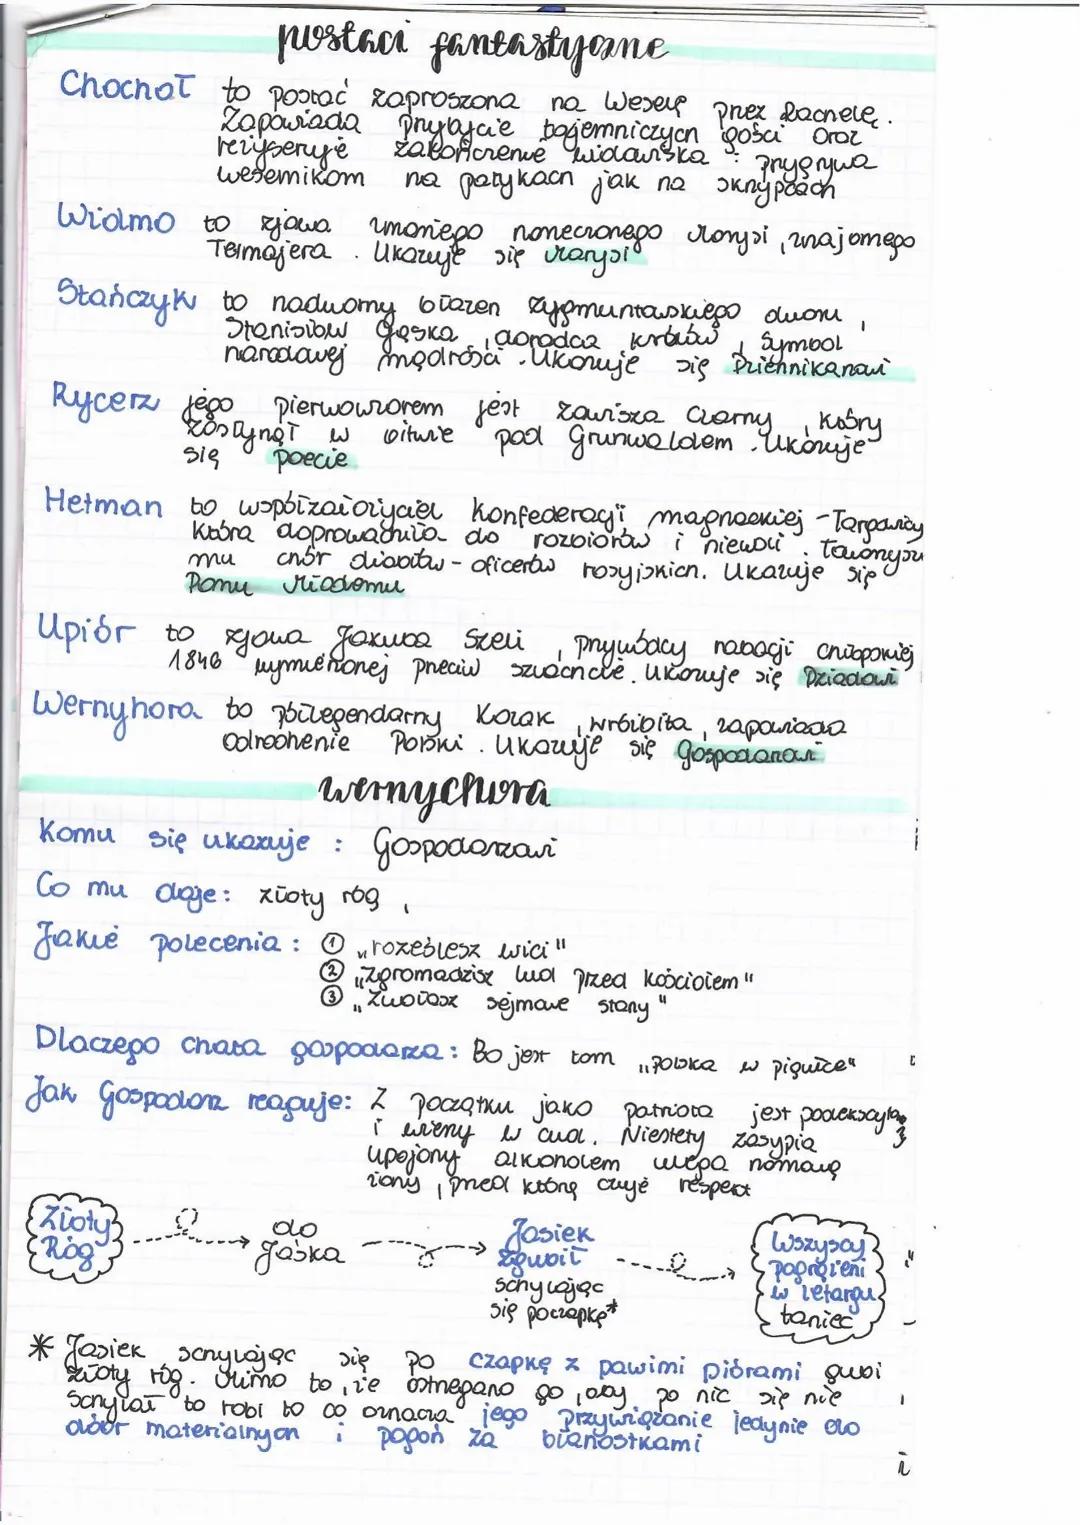 postaci fantastyczne
Chochoł to postać zaproszona na Wesele przez Rachelę.
Zapowiada przybycie tajemniczych gości oraz
reżyseruje zakończenie widowiska : przygrywa
weselnikom na patykach jak na skrzypcach
Widmo to zjawa zmarłego narzeczonego Marysi, znajomego
Tetmajera. Ukazuje się Marysi
Stańczyk to nadworny błazen zygmuntowskiego dworu,
Stanisław Gąska, doradca królów, symbol
narodowej mądrości. Ukazuje się Dziennikarzowi
Rycerz jego pierwowzorem jest Zawisza Czarny, który
zginął w bitwie pod Grunwaldem. Ukazuje
się poecie
Hetman to współzałożyciel konfederacji magnackiej - Targowicy
która doprowadziła do rozbiorów i niewoli. Towarzyszy
mu chór diabłów - oficerów rosyjskich. Ukazuje się
Panu Młodemu
Upiór to zjawa Jakuba Szeli, przywódcy rabacji chłopskiej
1846 wymierzonej przeciw szlachcie. Ukazuje się Dziadowi
Wernyhora to półlegendarny Kozak, wróżbita, zapowiada
odrodzenie Polski. Ukazuje się Gospodarzowi
wernychora
Komu się ukazuje : Gospodarzowi
Co mu daje: złoty róg,
Jakie polecenia : ① „rozeslesz wici"
② „Zgromadzisz lud przed kościołem"
③ „Zwołasz sejmowe stany"
Dlaczego chata gospodarza: Bo jest tam „Polska w pigułce"
Jak Gospodarz reaguje: Z początku jako patriota jest podekscytow
i wierzy w cud. Niestety zasypia
upojony alkoholem ulega namową
żony, przed którą czuje respekt
Złoty Róg
do Jaśka
Jasiek zgubił schylając się poczapkę*
Wszyscy pogrążeni w letargu taniec
* Jasiek schylając się po czapkę z pawimi piórami gubi
złoty róg. Mimo to, że ostrzegano go, aby po nic się nie
schylał to robi to co oznacza jego przywiązanie jedynie do
dóbr materialnych i pogoń za błahostkami